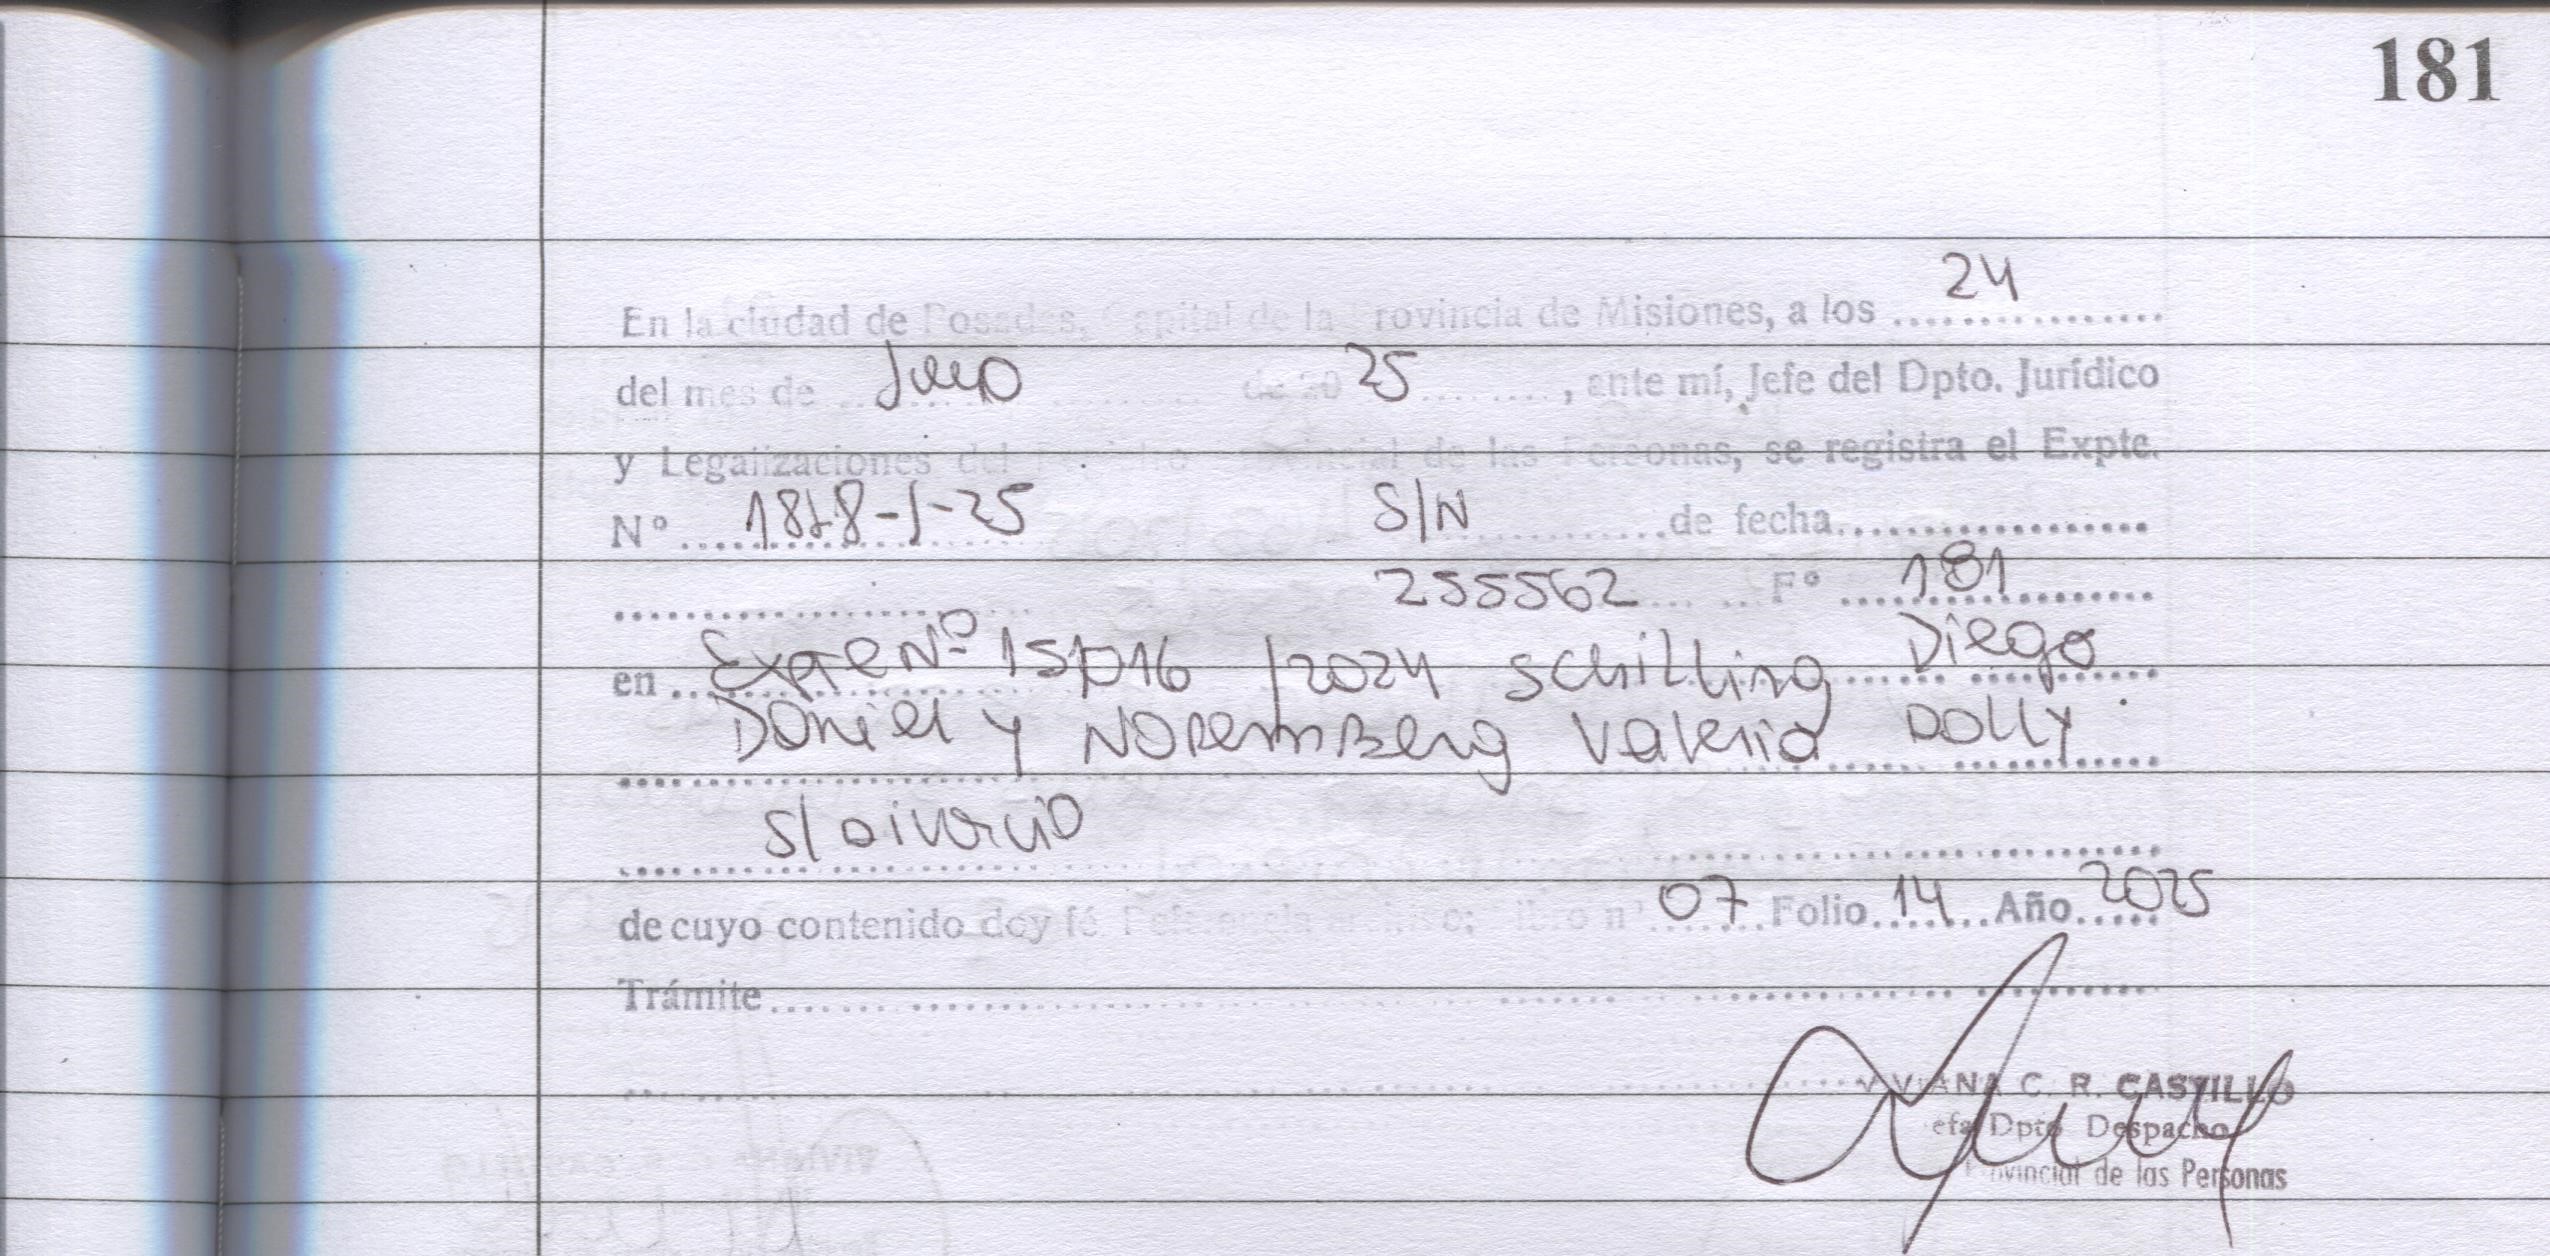 181
En la ciudad de Posadas, Capital de la Provincia de Misiones, a los 24
del mes de Julio de 20 25, ante mí, Jefe del Dpto. Jurídico
y Legalizaciones del Registro Provincial de las Personas, se registra el Expte.
Nº 1878-J-25 S/N de fecha
255562 Fº 181
en Expte Nº 151016 /2024 Schilling Diego
Daniel y Noremberg Valeria Dolly
S/ Divorcio
de cuyo contenido doy fé Libro nº 07 Folio 14 Año 2025
Trámite
VIVIANA C. R. CASTILLO
Jefa Dpto Despacho
Provincial de las Personas